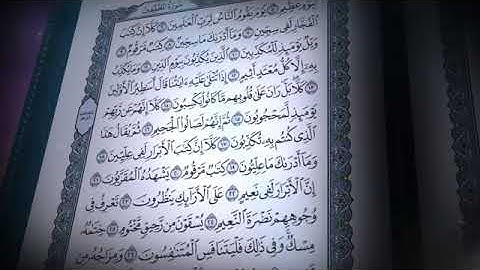 سُورَةُ المُطَفِّفِينَ
لِيَوْمٍ عَظِيمٍ ٥ يَوْمَ يَقُومُ ٱلنَّاسُ لِرَبِّ ٱلْعَٰلَمِينَ ٦ كَلَّآ إِنَّ كِتَٰبَ
ٱلْفُجَّارِ لَفِى سِجِّينٍ ٧ وَمَآ أَدْرَىٰكَ مَا سِجِّينٌ ٨ كِتَٰبٌ مَّرْقُومٌ ٩
وَيْلٌ يَوْمَئِذٍ لِّلْمُكَذِّبِينَ ١٠ ٱلَّذِينَ يُكَذِّبُونَ بِيَوْمِ ٱلدِّينِ ١١ وَمَا يُكَذِّبُ
بِهِۦٓ إِلَّا كُلُّ مُعْتَدٍ أَثِيمٍ ١٢ إِذَا تُتْلَىٰ عَلَيْهِ ءَايَٰتُنَا قَالَ أَسَٰطِيرُ ٱلْأَوَّلِينَ
١٣ كَلَّا بَلْ رَانَ عَلَىٰ قُلُوبِهِم مَّا كَانُوا۟ يَكْسِبُونَ ١٤ كَلَّآ إِنَّهُمْ عَن رَّبِّهِمْ
يَوْمَئِذٍ لَّمَحْجُوبُونَ ١٥ ثُمَّ إِنَّهُمْ لَصَالُوا۟ ٱلْجَحِيمِ ١٦ ثُمَّ يُقَالُ هَٰذَا
ٱلَّذِى كُنتُم بِهِۦ تُكَذِّبُونَ ١٧ كَلَّآ إِنَّ كِتَٰبَ ٱلْأَبْرَارِ لَفِى عِلِّيِّينَ ١٨
وَمَآ أَدْرَىٰكَ مَا عِلِّيُّونَ ١٩ كِتَٰبٌ مَّرْقُومٌ ٢٠ يَشْهَدُهُ ٱلْمُقَرَّبُونَ ٢١
إِنَّ ٱلْأَبْرَارَ لَفِى نَعِيمٍ ٢٢ عَلَى ٱلْأَرَآئِكِ يَنظُرُونَ ٢٣ تَعْرِفُ فِى
وُجُوهِهِمْ نَضْرَةَ ٱلنَّعِيمِ ٢٤ يُسْقَوْنَ مِن رَّحِيقٍ مَّخْتُومٍ ٢٥ خِتَٰمُهُۥ
مِسْكٌ وَفِى ذَٰلِكَ فَلْيَتَنَافَسِ ٱلْمُتَنَٰفِسُونَ ٢٦ وَمِزَاجُهُۥ مِن